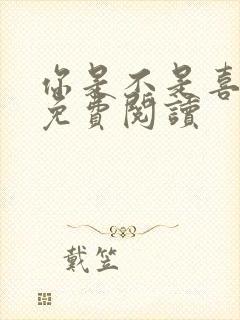 你是不是喜
免費閱讀
戴笠